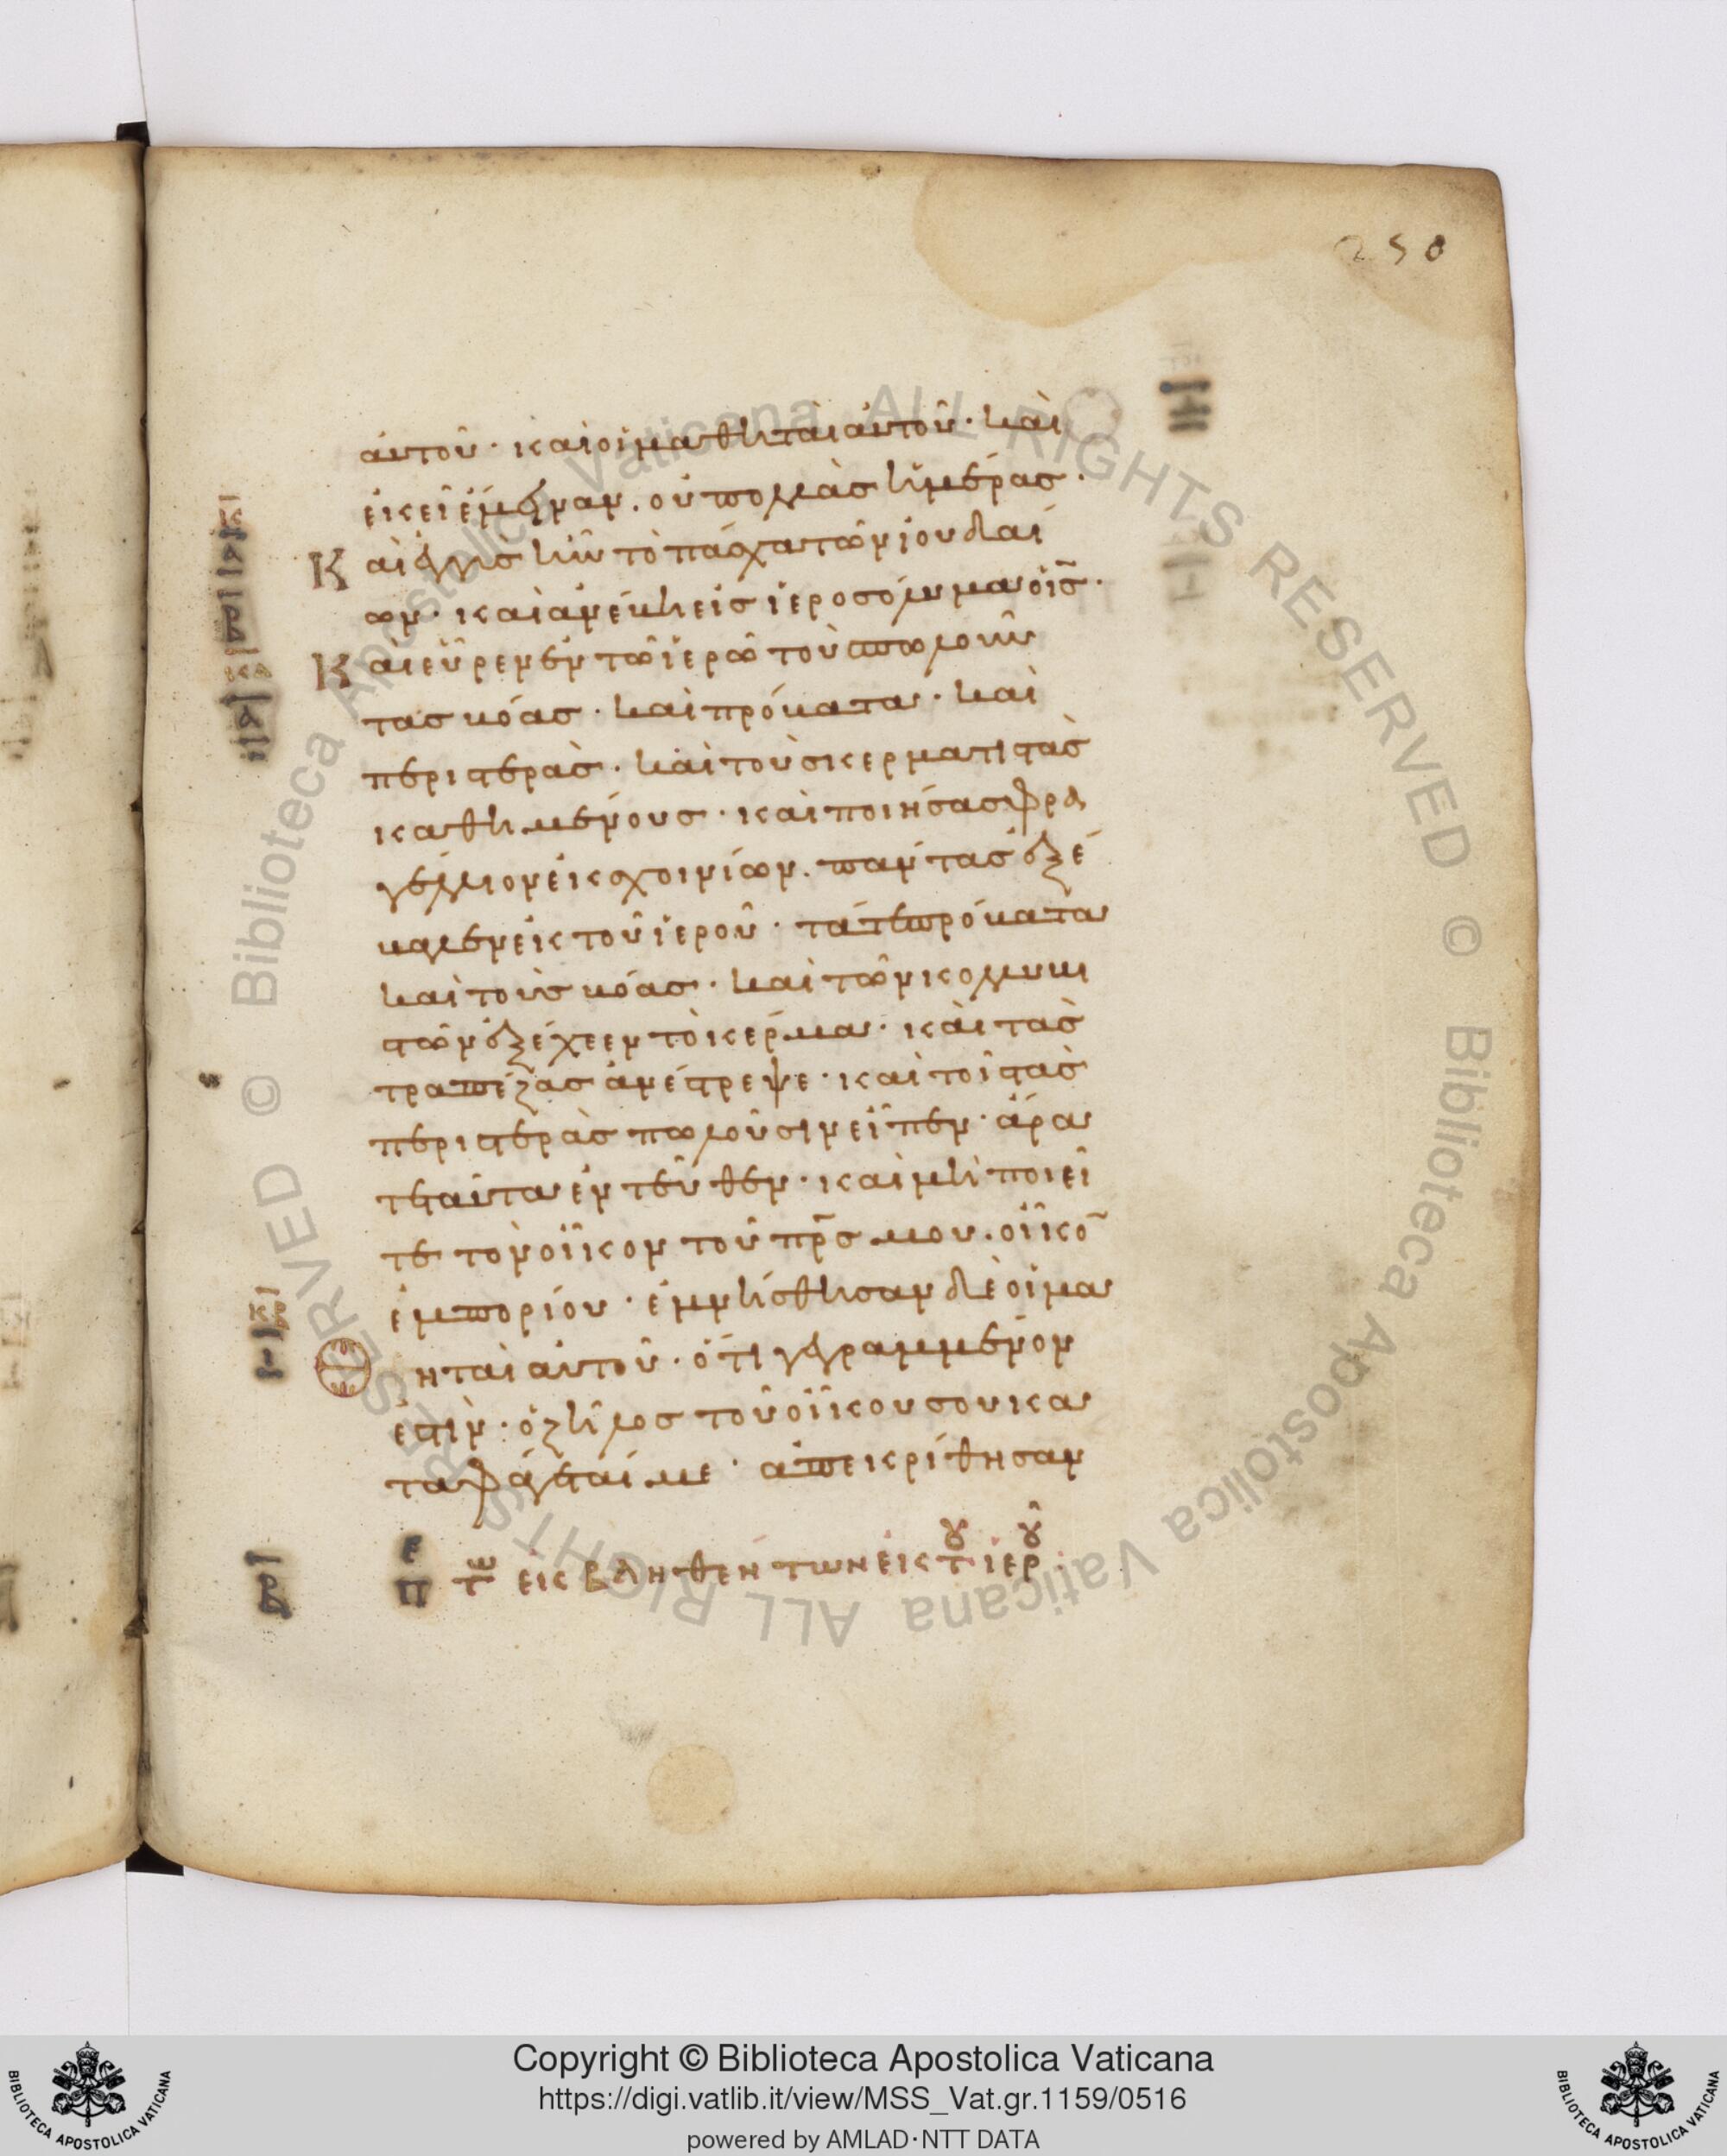 250
αὐτοῦ· καὶ οἱ μαθηταὶ αὐτοῦ· καὶ
ἐκεῖ ἔμειναν. οὐ πολλὰς ἡμέρας·
Καὶ ἐγγὺς ἦν τὸ πάσχα τῶν ἰουδαί
ων· καὶ ἀνέβη εἰς ἱεροσόλυμα ὁ ις̅·
Καὶ εὗρεν ἐν τῶ ἱερῶ τοὺς πωλοῦν
τας βόας· καὶ πρόβατα· καὶ
περιστερὰς· καὶ τοὺς κερματιστὰς
καθημένους· καὶ ποιήσας φρα
γέλλιον ἐκ σχοινίων. πάντας ἐξέ
βαλεν ἐκ τοῦ ἱεροῦ· τά τε πρόβατα
καὶ τοὺς βόας· καὶ τῶν κολλυβι
στῶν ἐξέχεεν τὸ κέρμα· καὶ τὰς
τραπέζας ἀνέστρεψε· καὶ τοῖς τὰς
περιστερὰς πωλοῦσιν εἶπεν· ἄρα
τε ταῦτα ἐντεῦθεν· καὶ μὴ ποιεῖ
τε τὸν οἶκον τοῦ πρ̅ς μου. οἶκο̅
ἐμπορίου· ἐμνήσθησαν δὲ οἱ μα
θηταὶ αὐτοῦ· ὅτι γεγραμμένον
ἐστὶν· ὁ ζῆλος τοῦ οἴκου σου κα
ταφάγεταί με· ἀπεκρίθησαν
τω εἰσβληθέντων εἰς του ιερου
Copyright © Biblioteca Apostolica Vaticana
https://digi.vatlib.it/view/MSS_Vat.gr.1159/0516
powered by AMLAD·NTT DATA